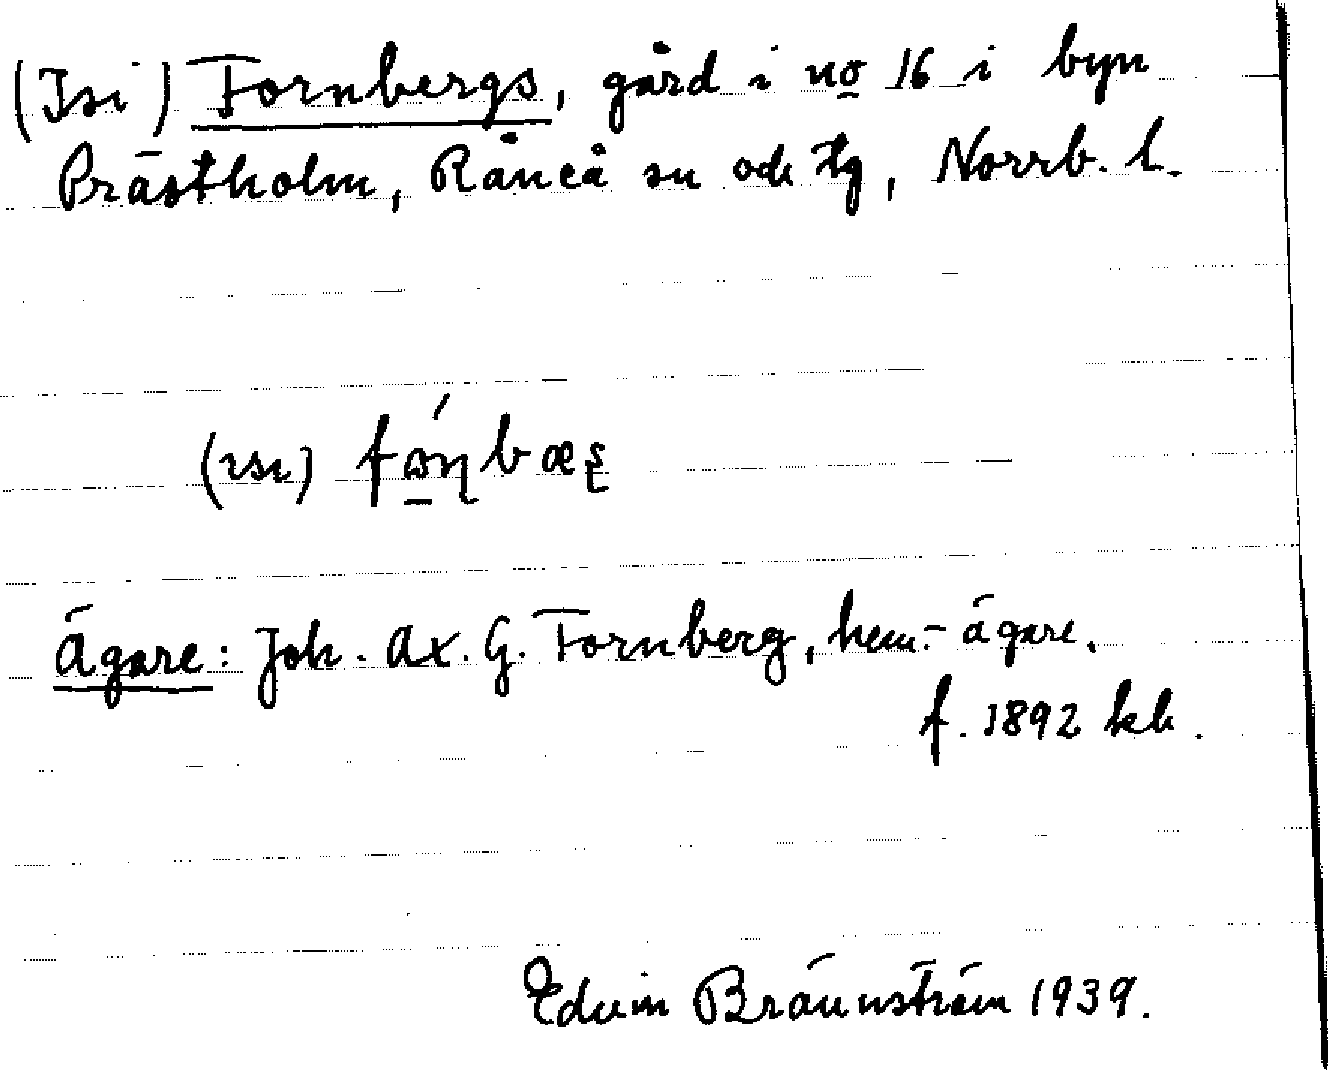 (Isi) Fornbergs, gård i no 16 i byn
Prästholm, Råneå sn och tg, Norrb. l.
(ɪsɪ)
Ägare: Joh. Ax. G. Fornberg, hem.-ägare.
f. 1892 kb.
Edvin Brännström 1939.